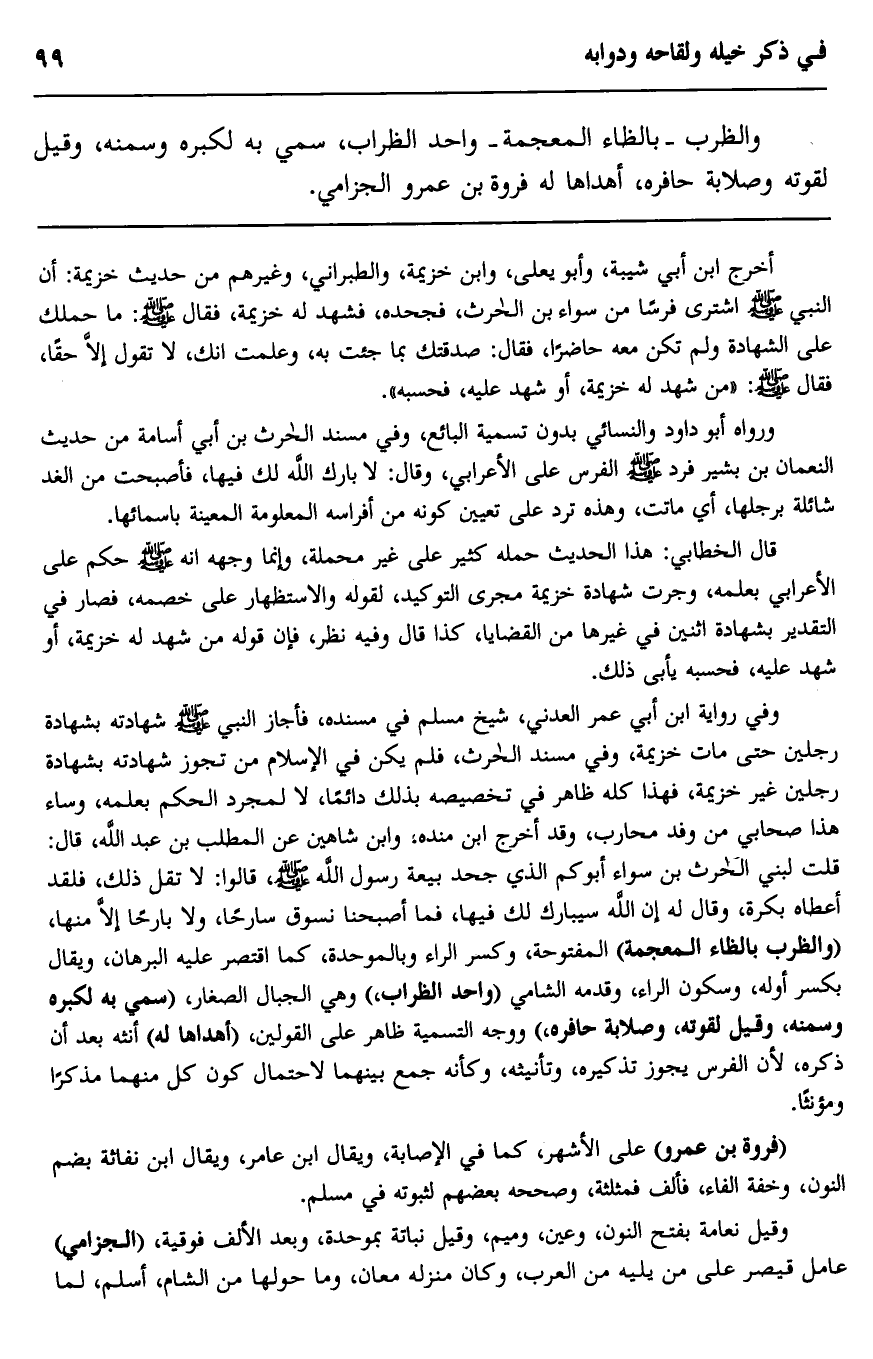 في ذكر خيله ولقاحه ودوابه ٩٩
والظرب ـ بالظاء المعجمة ـ واحد الظراب، سمي به لكبره وسمنه، وقيل
لقوته وصلابة حافره، أهداها له فروة بن عمرو الجزامي.
أخرج ابن أبي شيبة، وأبو يعلى، وابن خزيمة، والطبراني، وغيرهم من حديث خزيمة: أن
النبي ﷺ اشترى فرسًا من سواء بن الحٰرث، فجحده، فشهد له خزيمة، فقال ﷺ: ما حملك
على الشهادة ولم تكن معه حاضرًا، فقال: صدقتك بما جئت به، وعلمت انك، لا تقول إلاَّ حقًا،
فقال ﷺ: «من شهد له خزيمة، أو شهد عليه، فحسبه».
ورواه أبو داود والنسائي بدون تسمية البائع، وفي مسند الحٰرث بن أبي أسامة من حديث
النعمان بن بشير فرد ﷺ الفرس على الأعرابي، وقال: لا بارك اللَّه لك فيها، فأصبحت من الغد
شائلة برجلها، أي ماتت، وهذه ترد على تعيين كونه من أفراسه المعلومة المعينة باسمائها.
قال الخطابي: هذا الحديث حمله كثير على غير محملة، وإنما وجهه انه ﷺ حكم على
الأعرابي بعلمه، وجرت شهادة خزيمة مجرى التوكيد، لقوله والاستظهار على خصمه، فصار في
التقدير بشهادة اثنين في غيرها من القضايا، كذا قال وفيه نظر، فإن قوله من شهد له خزيمة، أو
شهد عليه، فحسبه يأبى ذلك.
وفي رواية ابن أبي عمر العدني، شيخ مسلم في مسنده، فأجاز النبي ﷺ شهادته بشهادة
رجلين حتى مات خزيمة، وفي مسند الحٰرث، فلم يكن في الإسلام من تجوز شهادته بشهادة
رجلين غير خزيمة، فهذا كله ظاهر في تخصيصه بذلك دائمًا، لا لمجرد الحكم بعلمه، وساء
هذا صحابي من وفد محارب، وقد أخرج ابن منده، وابن شاهين عن المطلب بن عبد اللَّه، قال:
قلت لبني الحٰرث بن سواء أبوكم الذي جحد بيعة رسول اللَّه ﷺ، قالوا: لا تقل ذلك، فلقد
أعطاه بكرة، وقال له إن اللَّه سيبارك لك فيها، فما أصبحنا نسوق سارحًا، ولا بارحًا إلاَّ منها،
(والظرب بالظاء المعجمة) المفتوحة، وكسر الراء وبالموحدة، كما اقتصر عليه البرهان، ويقال
بكسر أوله، وسكون الراء، وقدمه الشامي (واحد الظراب،) وهي الجبال الصغار، (سمي به لكبره
وسمنه، وقيل لقوته، وصلابة حافره،) ووجه التسمية ظاهر على القولين، (أهداها له) أنثه بعد أن
ذكره، لأن الفرس يجوز تذكيره، وتأنيثه، وكأنه جمع بينهما لاحتمال كون كل منهما مذكرًا
ومؤنثًا.
(فروة بن عمرو) على الأشهر، كما في الإصابة، ويقال ابن عامر، ويقال ابن نفاثة بضم
النون، وخفة الفاء، فألف فمثلثة، وصححه بعضهم لثبوته في مسلم.
وقيل نعامة بفتح النون، وعين، وميم، وقيل نباتة بموحدة، وبعد الألف فوقية، (الجزامي)
عامل قيصر على من يليه من العرب، وكان منزله معان، وما حولها من الشام، أسلم، لما